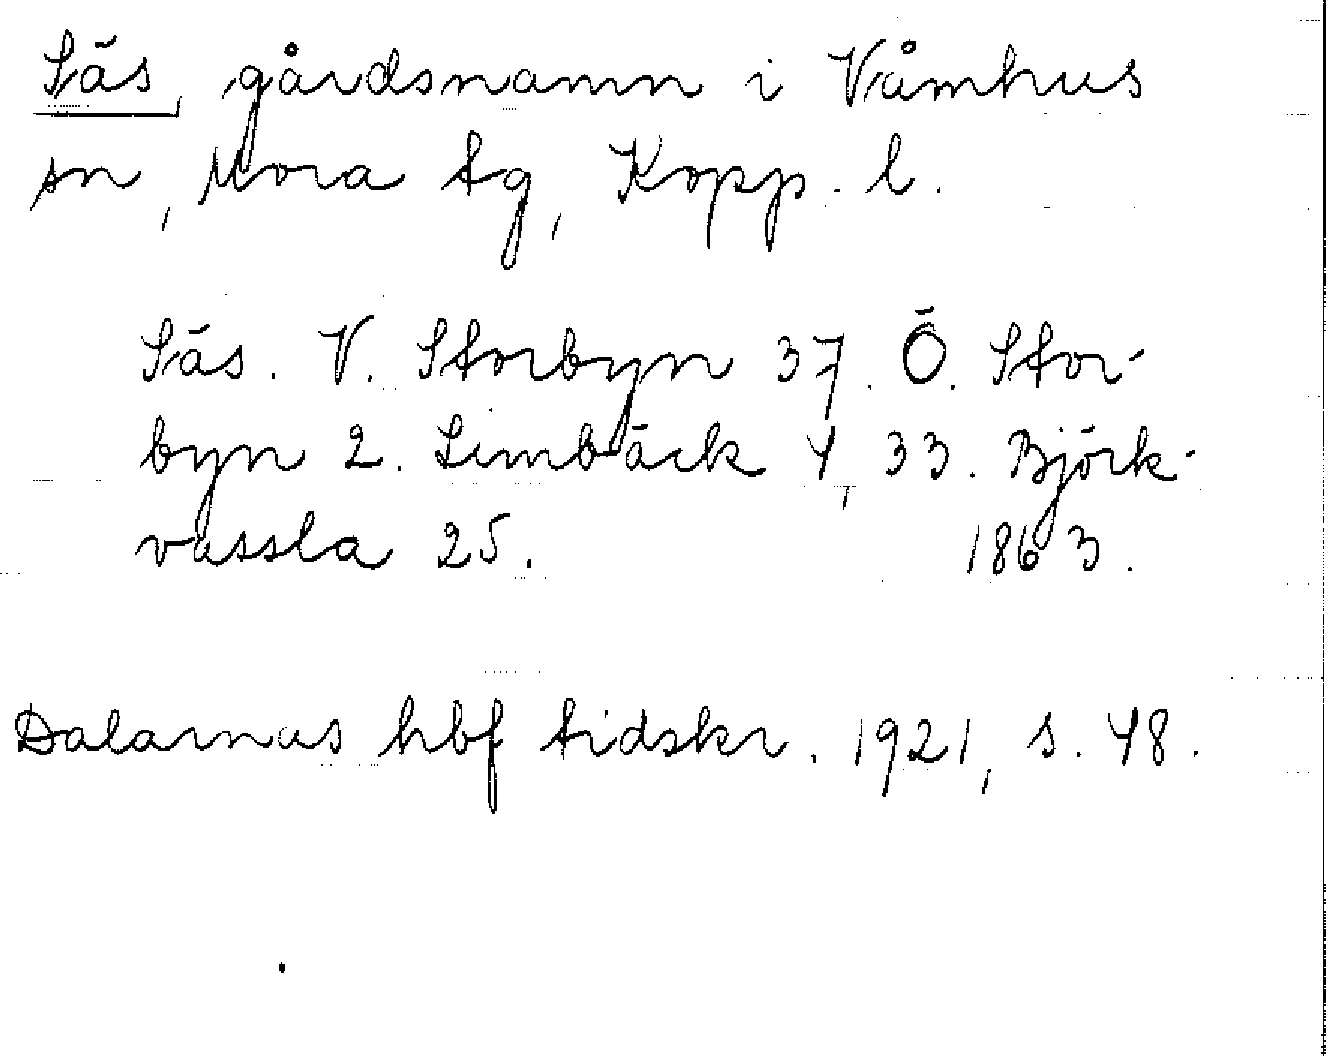 Säs, gårdsnamn i Våmhus
sn, Mora tg, Kopp. l.
Säs. V. Storbyn 37. Ö. Stor-
byn 2. Limbäck 4, 33. Björk-
vassla 25. 1863.
Dalarnas hbf tidskr. 1921, s. 48.